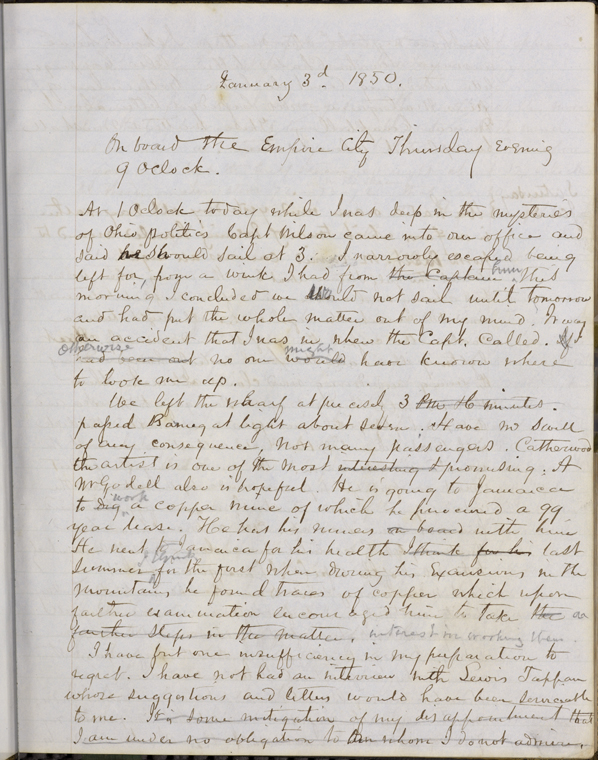 January 3d. 1850.
On board the Empire City Thursday Evening
9 OClock.
At 1 OClock today while I was deep in the mysteries
of Ohio politics Capt Wilson came into our office and
said he should sail at 3. I narrowly escaped being
left for, from a work I had from the Captain him this
morning I concluded we would not sail until tomorrow
and had put the whole matter out of my mind. It was
an accident that I was in when the Capt. Called. If
Otherwise
had been out no one would might have known where
to look me up.
We left the wharf at precisely 3 Pm 16 minutes.
passed Barnegat light about seven. Have no swell
of any consequence, Not many passengers. Catherwood
the artist is one of the most interesting & promising: A
Mr Godell also is hopeful. He is going to Jamaica
to dig work a copper mine of which he procured a 99
year lease. He has his miners on board with him
He went to Jamaica for his health I think for his last
Summer for the first when during his Excursions in the
mountains he found traces of copper which upon
further examination encouraged him to take the an
further steps in the matter, interest in working them.
I have but one insufficiency in my preparation to
regret. I have not had an interview with Lewis Tappan
whose suggestions and letters would have been serviceable
to me. It is some mitigation of my disappointment that
I am under no obligation to one whom I do not admire,